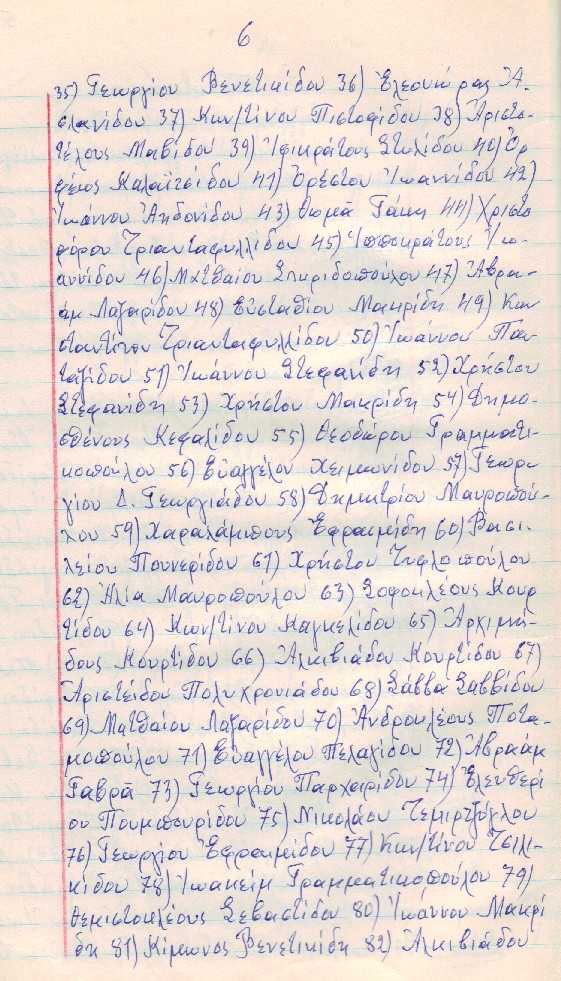 6
35) Γεωργίου Βενετικίδου 36) Ἐλεονώρας Ἀ-
σλανίδου 37) Κων/τίνου Πιστοφίδου 38) Ἀριστο-
τέλους Μαβίδου 39) Ἰφικράτους Στυλίδου 40) Ὀρ
φέως Καλαϊτσίδου 41) Ὀρέστου Ἰωαννίδου 42)
Ἰωάννου Ἀηδονίδου 43) Θωμᾶ Γάκη 44) Χριστο
φόρου Τριανταφυλλίδου 45) Ἱπποκράτους Ἰω-
αννίδου 46) Ματθαίου Σπυριδοπούλου 47) Ἀβρα-
ὰμ Λαζαρίδου 48) Εὐσταθίου Μακρίδη 49) Κων
σταντίνου Τριανταφυλλίδου 50) Ἰωάννου Παν
ταζίδου 51) Ἰωάννου Στεφανίδη 52) Χρήστου
Στεφανίδη 53) Χρήστου Μακρίδη 54) Δημο-
σθένους Κεφαλίδου 55) Θεοδώρου Γραμματι-
κοπούλου 56) Εὐαγγέλου Χειμωνίδου 57) Γεωρ-
γίου Δ. Γεωργιάδου 58) Δημητρίου Μαυροπού-
λου 59) Χαραλάμπους Ἐφραιμίδη 60) Βασι-
λείου Πουνερίδου 61) Χρήστου Τυφλοπούλου
62) Ἠλία Μαυροπούλου 63) Σοφοκλέους Κουρ
τίδου 64) Κων/τίνου Καγκελίδου 65) Ἀρχιμή-
δους Κουρτίδου 66) Ἀλκιβιάδου Κουρτίδου 67)
Ἀριστείδου Πολυχρονιάδου 68) Σάββα Σαββίδου
69) Ματθαίου Λαζαρίδου 70) Ἀνδροκλέους Ποτα-
μοπούλου 71) Εὐαγγέλου Πελαγίδου 72) Ἀβραάμ
Γαβρᾶ 73) Γεωργίου Παρχαρίδου 74) Ἐλευθερί
ου Πουμπουρίδου 75) Νικολάου Τεμιρτζόγλου
76) Γεωργίου Ἐφραιμίδου 77) Κων/τίνου Τσιλι-
κίδου 78) Ἰωακείμ Γραμματικοπούλου 79)
Θεμιστοκλέους Σεβαστίδου 80) Ἰωάννου Μακρί
δη 81) Κίμωνος Βενετικίδη 82) Ἀλκιβιάδου